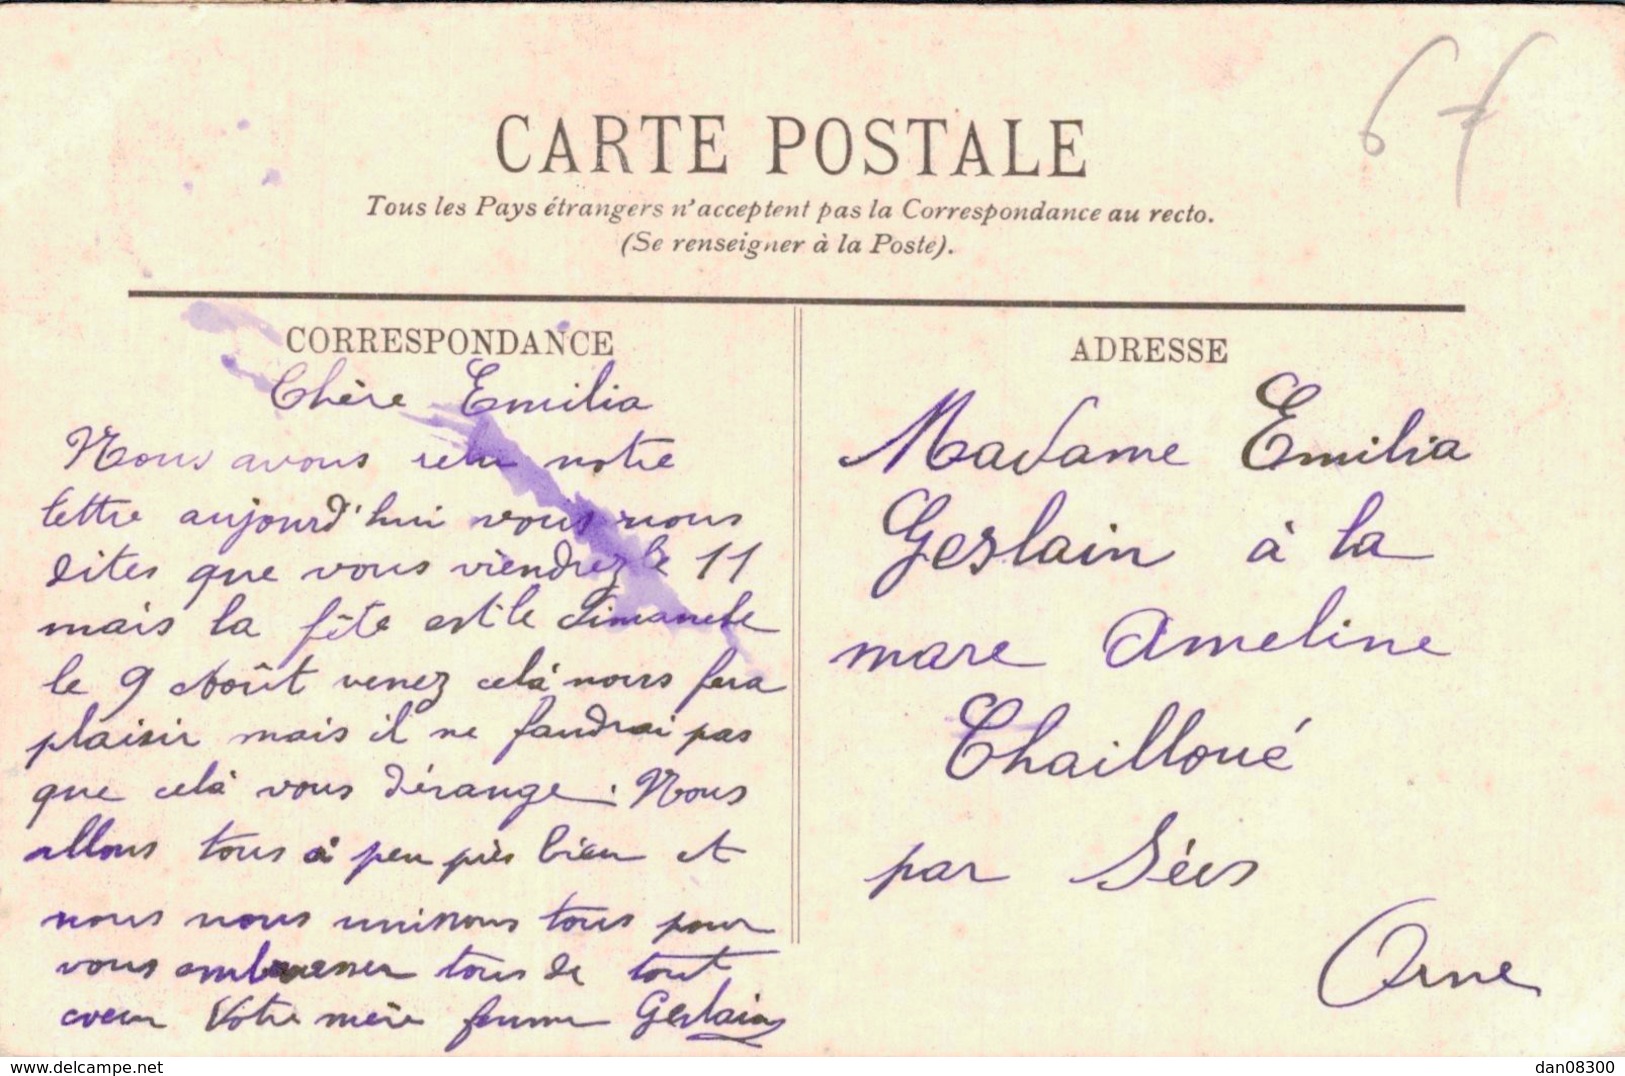 67
CARTE POSTALE
Tous les Pays étrangers n'acceptent pas la Correspondance au recto.
(Se renseigner à la Poste).
CORRESPONDANCE
Chère Emilia
Nous avons relu notre
lettre aujourd'hui vous nous
dites que vous viendrez le 11
mais la fête est le dimanche
le 9 Août venez celà nous fera
plaisir mais il ne faudrai pas
que celà vous dérange. Nous
allons tous à peu près bien et
nous nous unissons tous pour
vous embrasser tous de tout
coeur Votre mère femme Geslain
ADRESSE
Madame Emilia
Geslain à la
mare Ameline
Chailloué
par Sées
Orne
Delcampe.net
dan08300